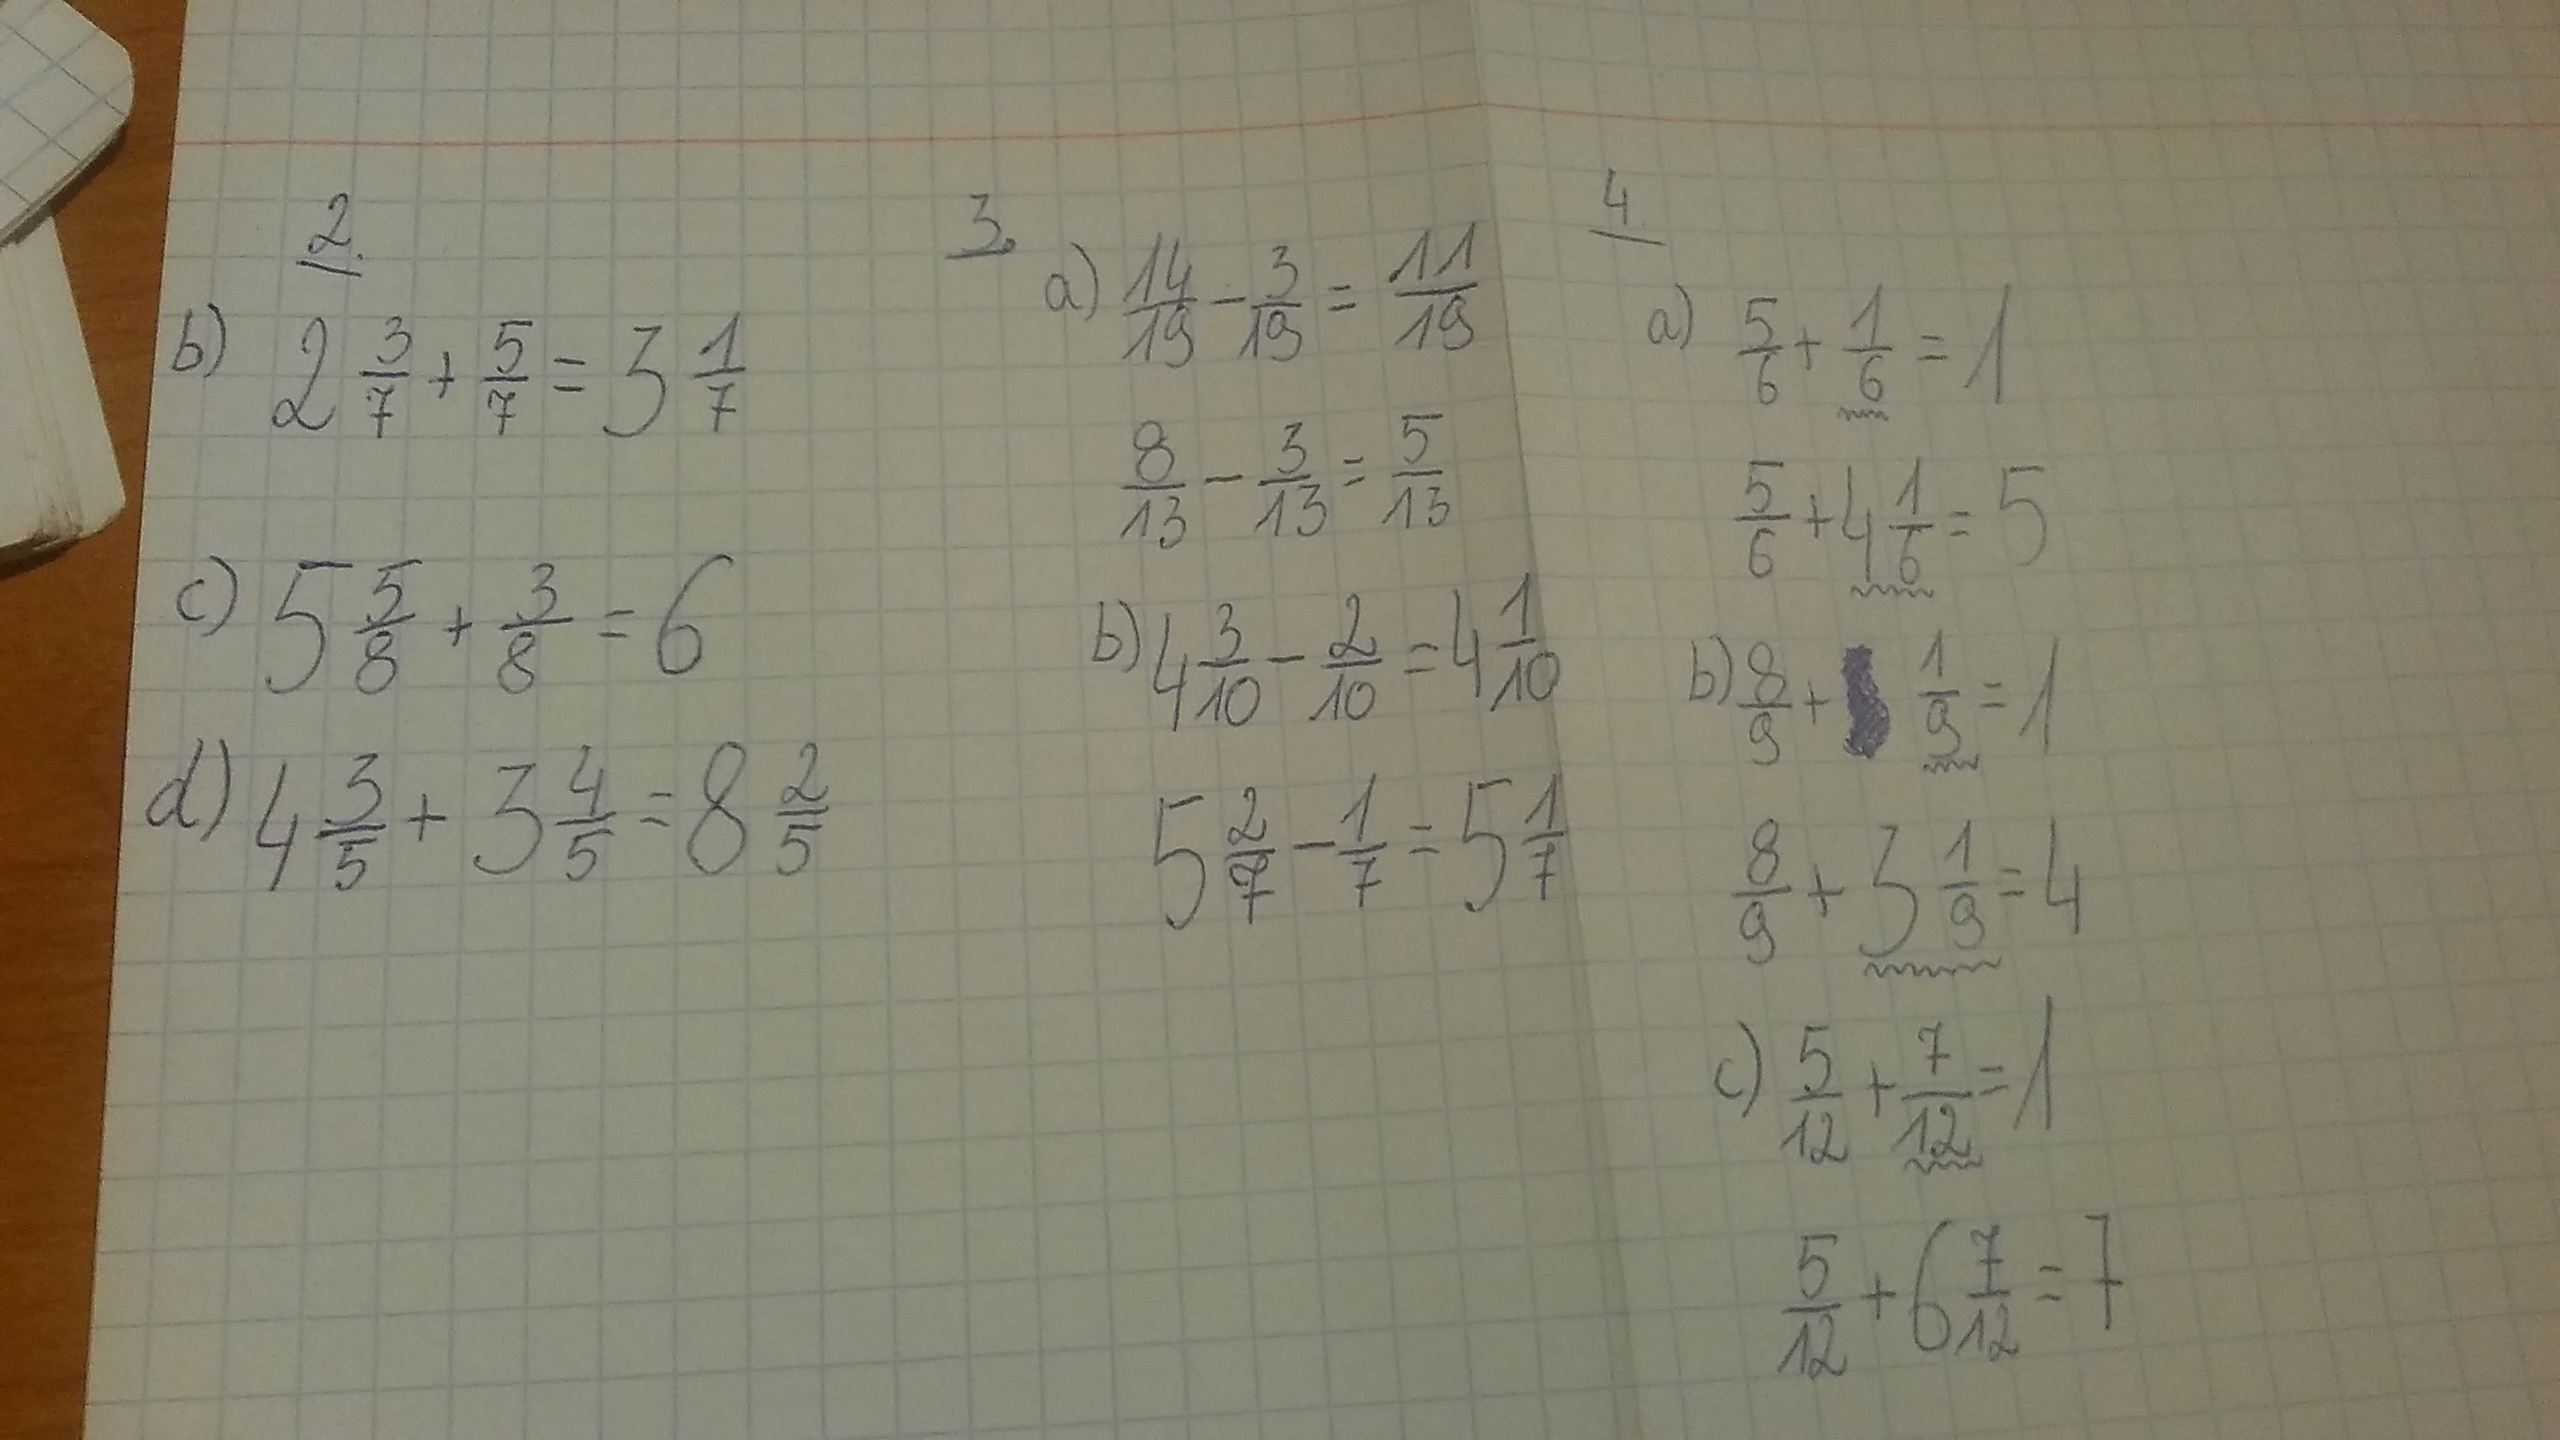 2.
b) 2 3/7 + 5/7 = 3 1/7
c) 5 5/8 + 3/8 = 6
d) 4 3/5 + 3 4/5 = 8 2/5
3.
a) 14/19 - 3/19 = 11/19
8/13 - 3/13 = 5/13
b) 4 3/10 - 2/10 = 4 1/10
5 2/7 - 1/7 = 5 1/7
4.
a) 5/6 + 1/6 = 1
5/6 + 4 1/6 = 5
b) 8/9 + 1/9 = 1
8/9 + 3 1/9 = 4
c) 5/12 + 7/12 = 1
5/12 + 6 7/12 = 7